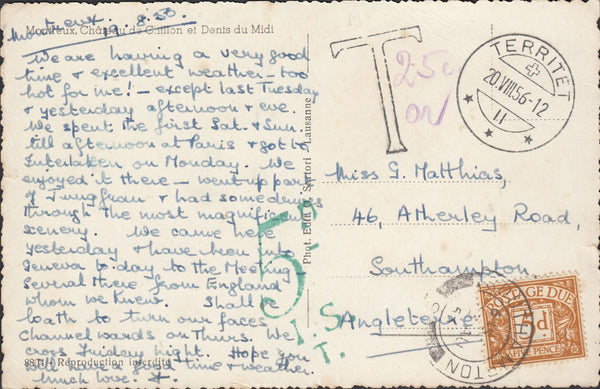 Montreux
19.8.56
Montreux, Château de Chillon et Dents du Midi
We are having a very good
time & excellent weather - too
hot for me! - except last Tuesday
& yesterday afternoon & eve.
We spent the first Sat. & Sun.
till afternoon at Paris & got to
Interlaken on Monday. We
enjoyed it there - went up part
of Jungfrau & had some drives
through the most magnificent
scenery. We came here
yesterday & have been into
Geneva to-day to the Meeting
Several there from England
whom we knew. Shall be
loath to turn our faces
Channelwards on Thurs. We
cross Friday night. Hope you
time & weather
much love. J.
Reproduction interdite
Phot. Edit. O. Sartori - Lausanne
T
25c
TERRITET
20.VIII.56-12
11
Miss G. Matthias,
46, Atherley Road,
Southampton
Angleterre
5D
I.S.
T.
POSTAGE DUE
5d
FIVE PENCE